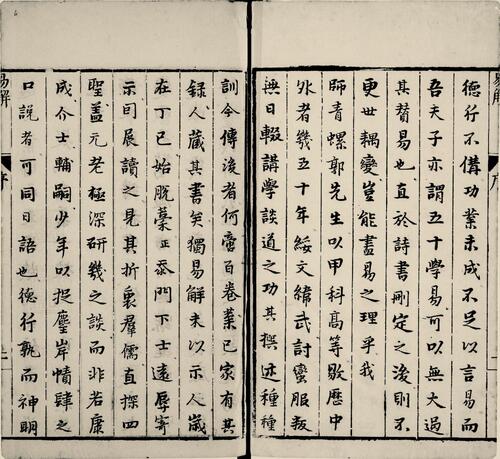 德行不備功業未成不足以言易而
吾夫子亦謂五十學易可以無大過
其贊易也直於詩書刪定之後則不
更世耦變豈能盡易之理乎我
師青螺郭先生以甲科高等敭歷中
外者幾五十年綏文緯武討蠻服叛
無日輟講學談道之功其撰述種種
訓今傳後者何啻百卷業已家有其
錄人藏其書矣獨易解未以示人歲
在丁巳始脫藁正忝門下士遠辱寄
示囘展讀之見其折衷羣儒直探四
聖蓋元老極深研幾之談而非若康
成介士輔嗣少年以捉麈岸幘肆之
口說者可同日語也德行孰而神明
易解
序